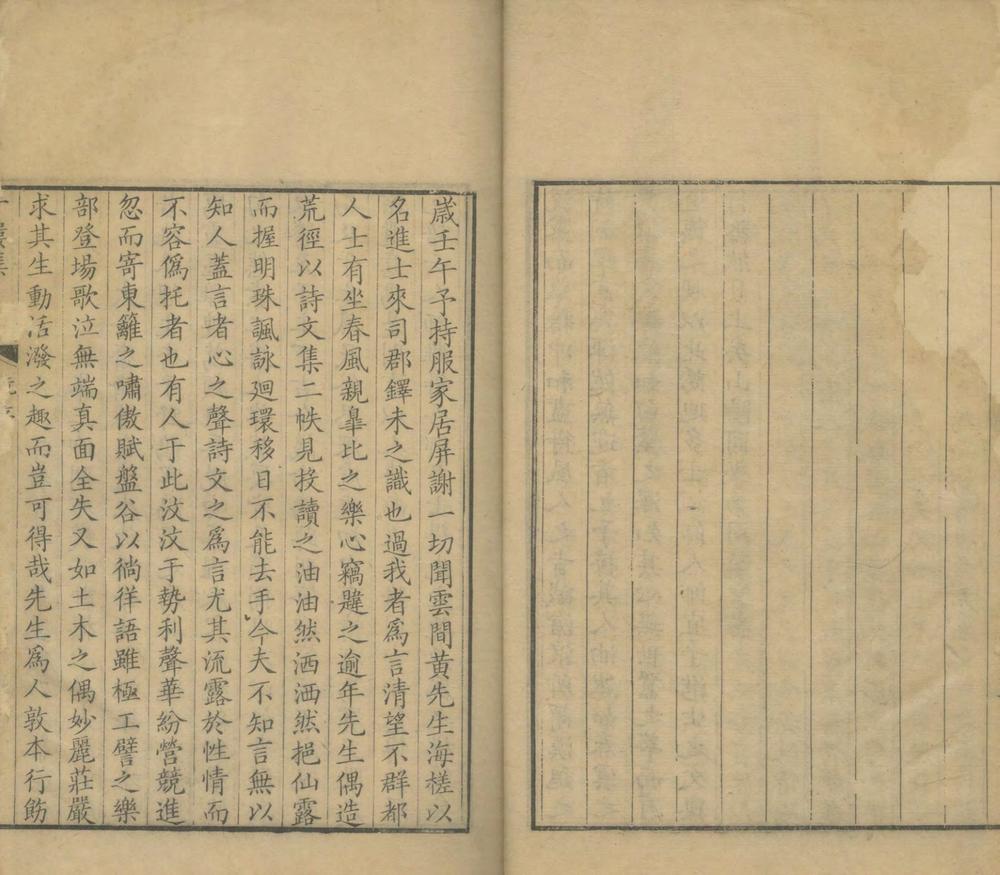 歲壬午予持服家居屏謝一切聞雲間黃先生海槎以
名進士來司郡鐸未之識也過我者爲言清望不群都
人士有坐春風親臯比之樂心竊韙之逾年先生偶造
荒徑以詩文集二帙見投讀之油油然洒洒然挹仙露
而握明珠諷詠廻環移日不能去手今夫不知言無以
知人蓋言者心之聲詩文之爲言尤其流露於性情而
不容僞托者也有人于此汶汶于勢利聲華紛營競進
忽而寄東籬之嘯傲賦盤谷以徜徉語雖極工譬之樂
部登場歌泣無端真面全失又如土木之偶妙麗莊嚴
求其生動活潑之趣而豈可得哉先生爲人敦本行飭